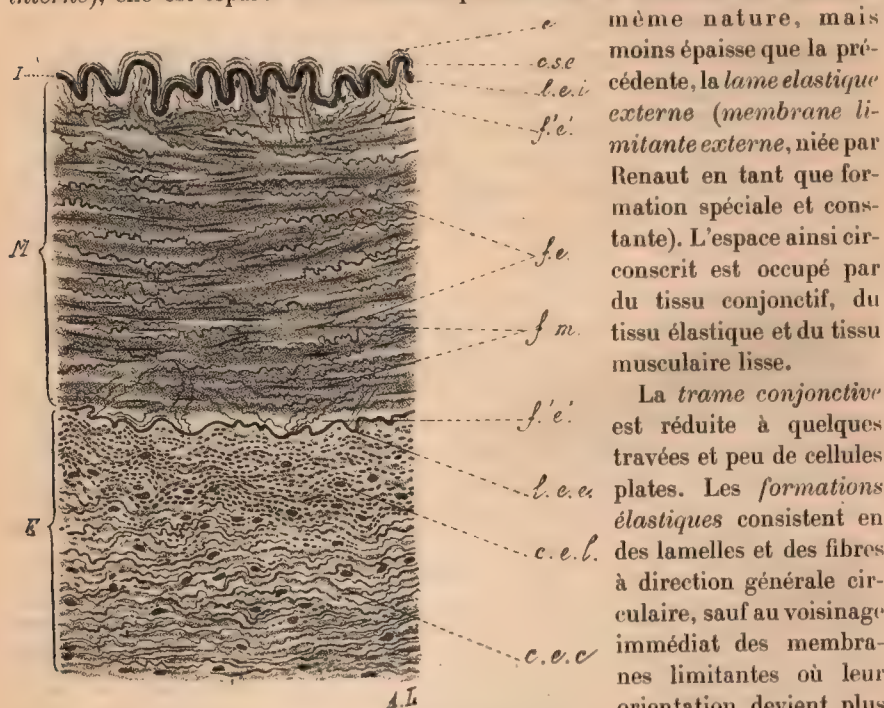 même nature, mais
moins épaisse que la pré-
cédente, la lame elastique
externe (membrane li-
mitante externe, niée par
Renaut en tant que for-
mation spéciale et cons-
tante). L'espace ainsi cir-
conscrit est occupé par
du tissu conjonctif, du
tissu élastique et du tissu
musculaire lisse.
La trame conjonctive
est réduite à quelques
travées et peu de cellules
plates. Les formations
élastiques consistent en
des lamelles et des fibres
à direction générale cir-
culaire, sauf au voisinage
immédiat des membra-
nes limitantes où leur
orientation devient plus
I
M
E
e
c.s.e
l.e.i
f.'e.'
f.e.
f m.
f.'e.'
l.e.e.
c.e.l.
c.e.c
A.L